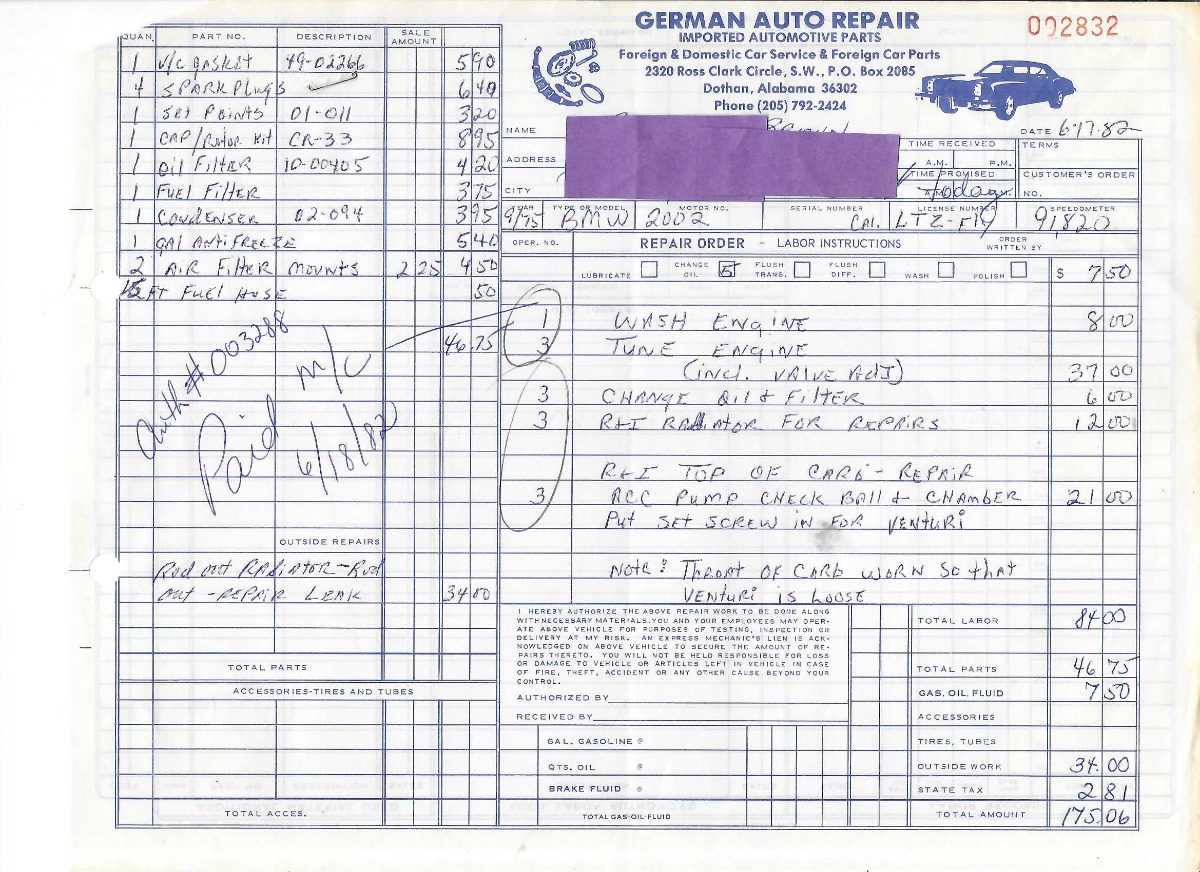 GERMAN AUTO REPAIR
IMPORTED AUTOMOTIVE PARTS
Foreign & Domestic Car Service & Foreign Car Parts
2320 Ross Clark Circle, S.W., P.O. Box 2085
Dothan, Alabama 36302
Phone (205) 792-2424
002832
QUAN. PART NO. DESCRIPTION SALE AMOUNT
1 V/C GASKET 49-02266 5 90
4 SPARK PLUGS 6 40
1 SET POINTS 01-011 3 20
1 CAP/ROTOR KIT CR-33 8 95
1 OIL FILTER 10-00405 4 20
1 FUEL FILTER 3 75
1 CONDENSER 02-094 3 95
1 GAL ANTIFREEZE 5 40
2 AIR FILTER MOUNTS 2 25 4 50
1/2 FT FUEL HOSE 50
46.75
Auth # 003288
Paid M/C
6/18/82
OUTSIDE REPAIRS
Rod out RADIATOR - ROD
OUT - REPAIR LEAK 34 00
TOTAL PARTS
ACCESSORIES-TIRES AND TUBES
TOTAL ACCES.
NAME
DATE 6-17-82
ADDRESS
TIME RECEIVED
A.M. P.M.
TERMS
CITY
TIME PROMISED
A.M. P.M.
today
CUSTOMER'S ORDER
NO.
YEAR 9/75 TYPE OR MODEL BMW MOTOR NO. 2002 SERIAL NUMBER CAL. LICENSE NUMBER SPEEDOMETER 91820
OPER. NO. REPAIR ORDER - LABOR INSTRUCTIONS ORDER WRITTEN BY
LUBRICATE CHANGE OIL 5 FLUSH TRANS. FLUSH DIFF. WASH POLISH $ 7 50
1 WASH ENGINE 8 00
3 TUNE ENGINE
(incl. VALVE ADJ) 37 00
3 CHANGE OIL & FILTER 6 00
3 R & I RADIATOR FOR REPAIRS 12 00
R & I TOP OF CARB - REPAIR
3 ACC PUMP CHECK BALL & CHAMBER 21 00
PUT SET SCREW IN FOR VENTURI
NOTE: THROAT OF CARB WORN SO THAT
VENTURI IS LOOSE
I HEREBY AUTHORIZE THE ABOVE REPAIR WORK TO BE DONE ALONG
WITH NECESSARY MATERIALS. YOU AND YOUR EMPLOYEES MAY OPER-
ATE ABOVE VEHICLE FOR PURPOSES OF TESTING, INSPECTION OR
DELIVERY AT MY RISK. AN EXPRESS MECHANIC'S LIEN IS ACK-
NOWLEDGED ON ABOVE VEHICLE TO SECURE THE AMOUNT OF RE-
PAIRS THERETO. YOU WILL NOT BE HELD RESPONSIBLE FOR LOSS
OR DAMAGE TO VEHICLE OR ARTICLES LEFT IN VEHICLE IN CASE
OF FIRE, THEFT, ACCIDENT OR ANY OTHER CAUSE BEYOND YOUR
CONTROL.
AUTHORIZED BY
RECEIVED BY
GAL. GASOLINE @
QTS. OIL @
BRAKE FLUID @
TOTAL GAS-OIL-FLUID
TOTAL LABOR 84 00
TOTAL PARTS 46 75
GAS, OIL, FLUID 7 50
ACCESSORIES
TIRES, TUBES
OUTSIDE WORK 34.00
STATE TAX 2 81
TOTAL AMOUNT 175.06